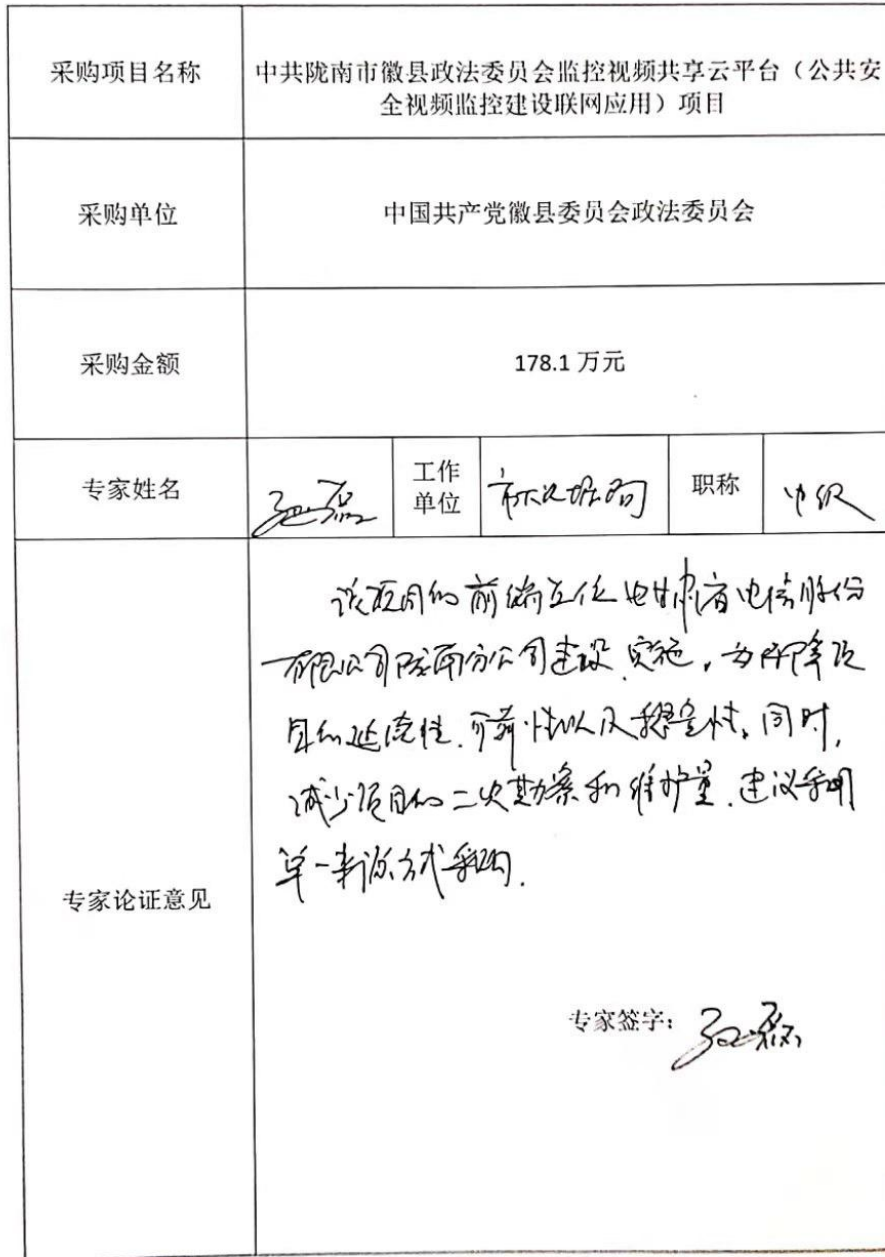 采购项目名称
中共陇南市徽县政法委员会监控视频共享云平台（公共安
全视频监控建设联网应用）项目
采购单位
中国共产党徽县委员会政法委员会
采购金额
178.1万元
专家姓名
工作
单位
职称
中级
专家论证意见
该项目的前端 甘肃省电信股份
有限公司陇南分公司建设实施，为 项
目的延续性、 性以及稳定性。同时，
减少项目的二次勘察和维护量，建议采用
单一来源方式采购.
专家签字：